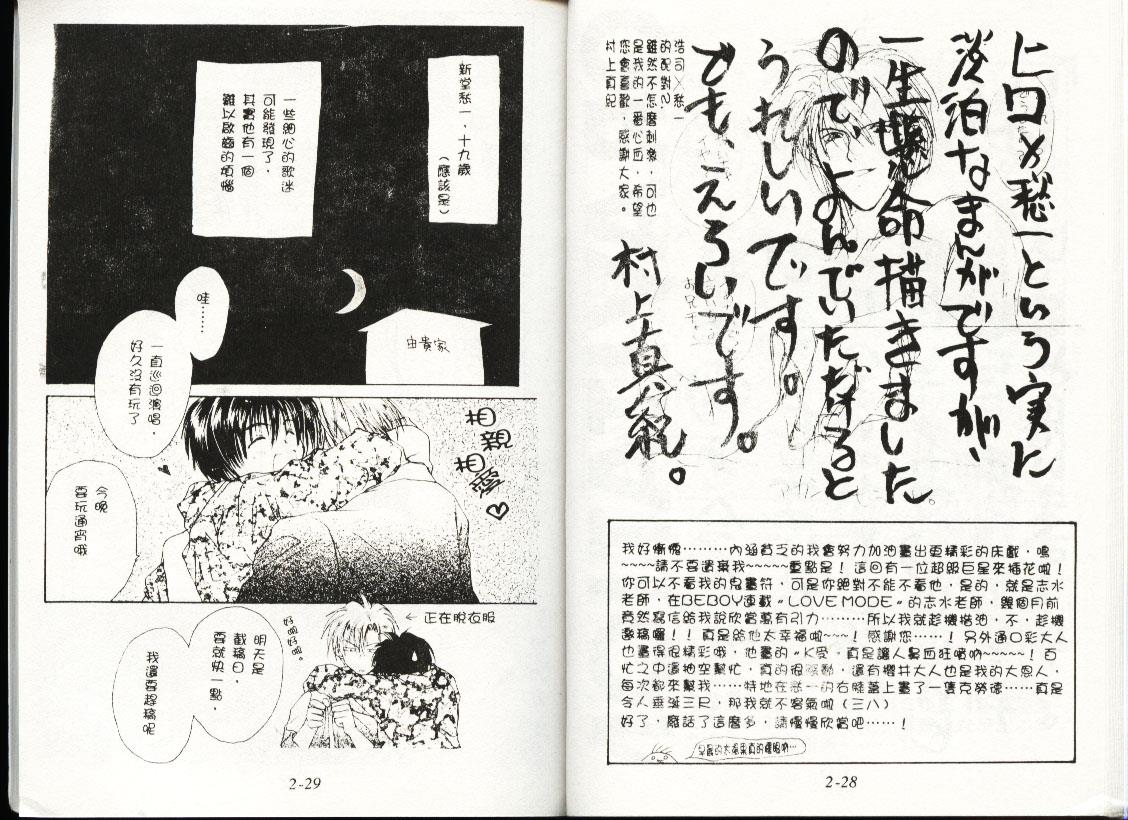 上口×愁一という実に
淡泊なまんがですが、
一生懸命描きました
ので、よんでいただけると
うれしいです。
でも、えろいです。
村上真紀。
浩司×愁一
的配對?
雖然不怎麼刺激，可也
是我的一番心血，希望
您會喜歡，感謝大家。
村上真紀
我好慚愧………內涵貧乏的我會努力加油畫出更精彩的床戲，嗚
~~~~請不要遺棄我~~~~~重點是！這回有一位超級巨星來插花啦！
你可以不看我的鬼畫符，可是你絕對不能不看他，是的，就是志水
老師，在BEBOY連載〝LOVE MODE〞的志水老師，幾個月前
竟然寫信給我說欣賞萬有引力………所以我就趁機揩油，不，趁機
邀稿囉！！真是給他太幸福啦~~~！感謝您……！另外通口彩大人
也畫得很精彩哦，他畫的〝K受，真是讓人鼻血狂噴吶~~~~~！百
忙之中還抽空幫忙，真的很感動，還有櫻井大人也是我的大恩人，
每次都來幫我……特地在愁一的右膝蓋上畫了一隻克勞德……真是
令人垂涎三尺，那我就不客氣啦（三八）
好了，廢話了這麼多，請慢慢欣賞吧……！
2-28
新堂愁一，十九歲
（應該是）
一些細心的歌迷
可能發現了，
其實他有一個
難以啟齒的煩惱
由貴家
哇……
一直巡迴演唱，
好久沒有玩了
相親
相愛♡
今晚
要玩通宵哦
← 正在脫衣服
好啦好啦。
明天是
截稿日，
要就快一點，
我還要趕稿呢
2-29